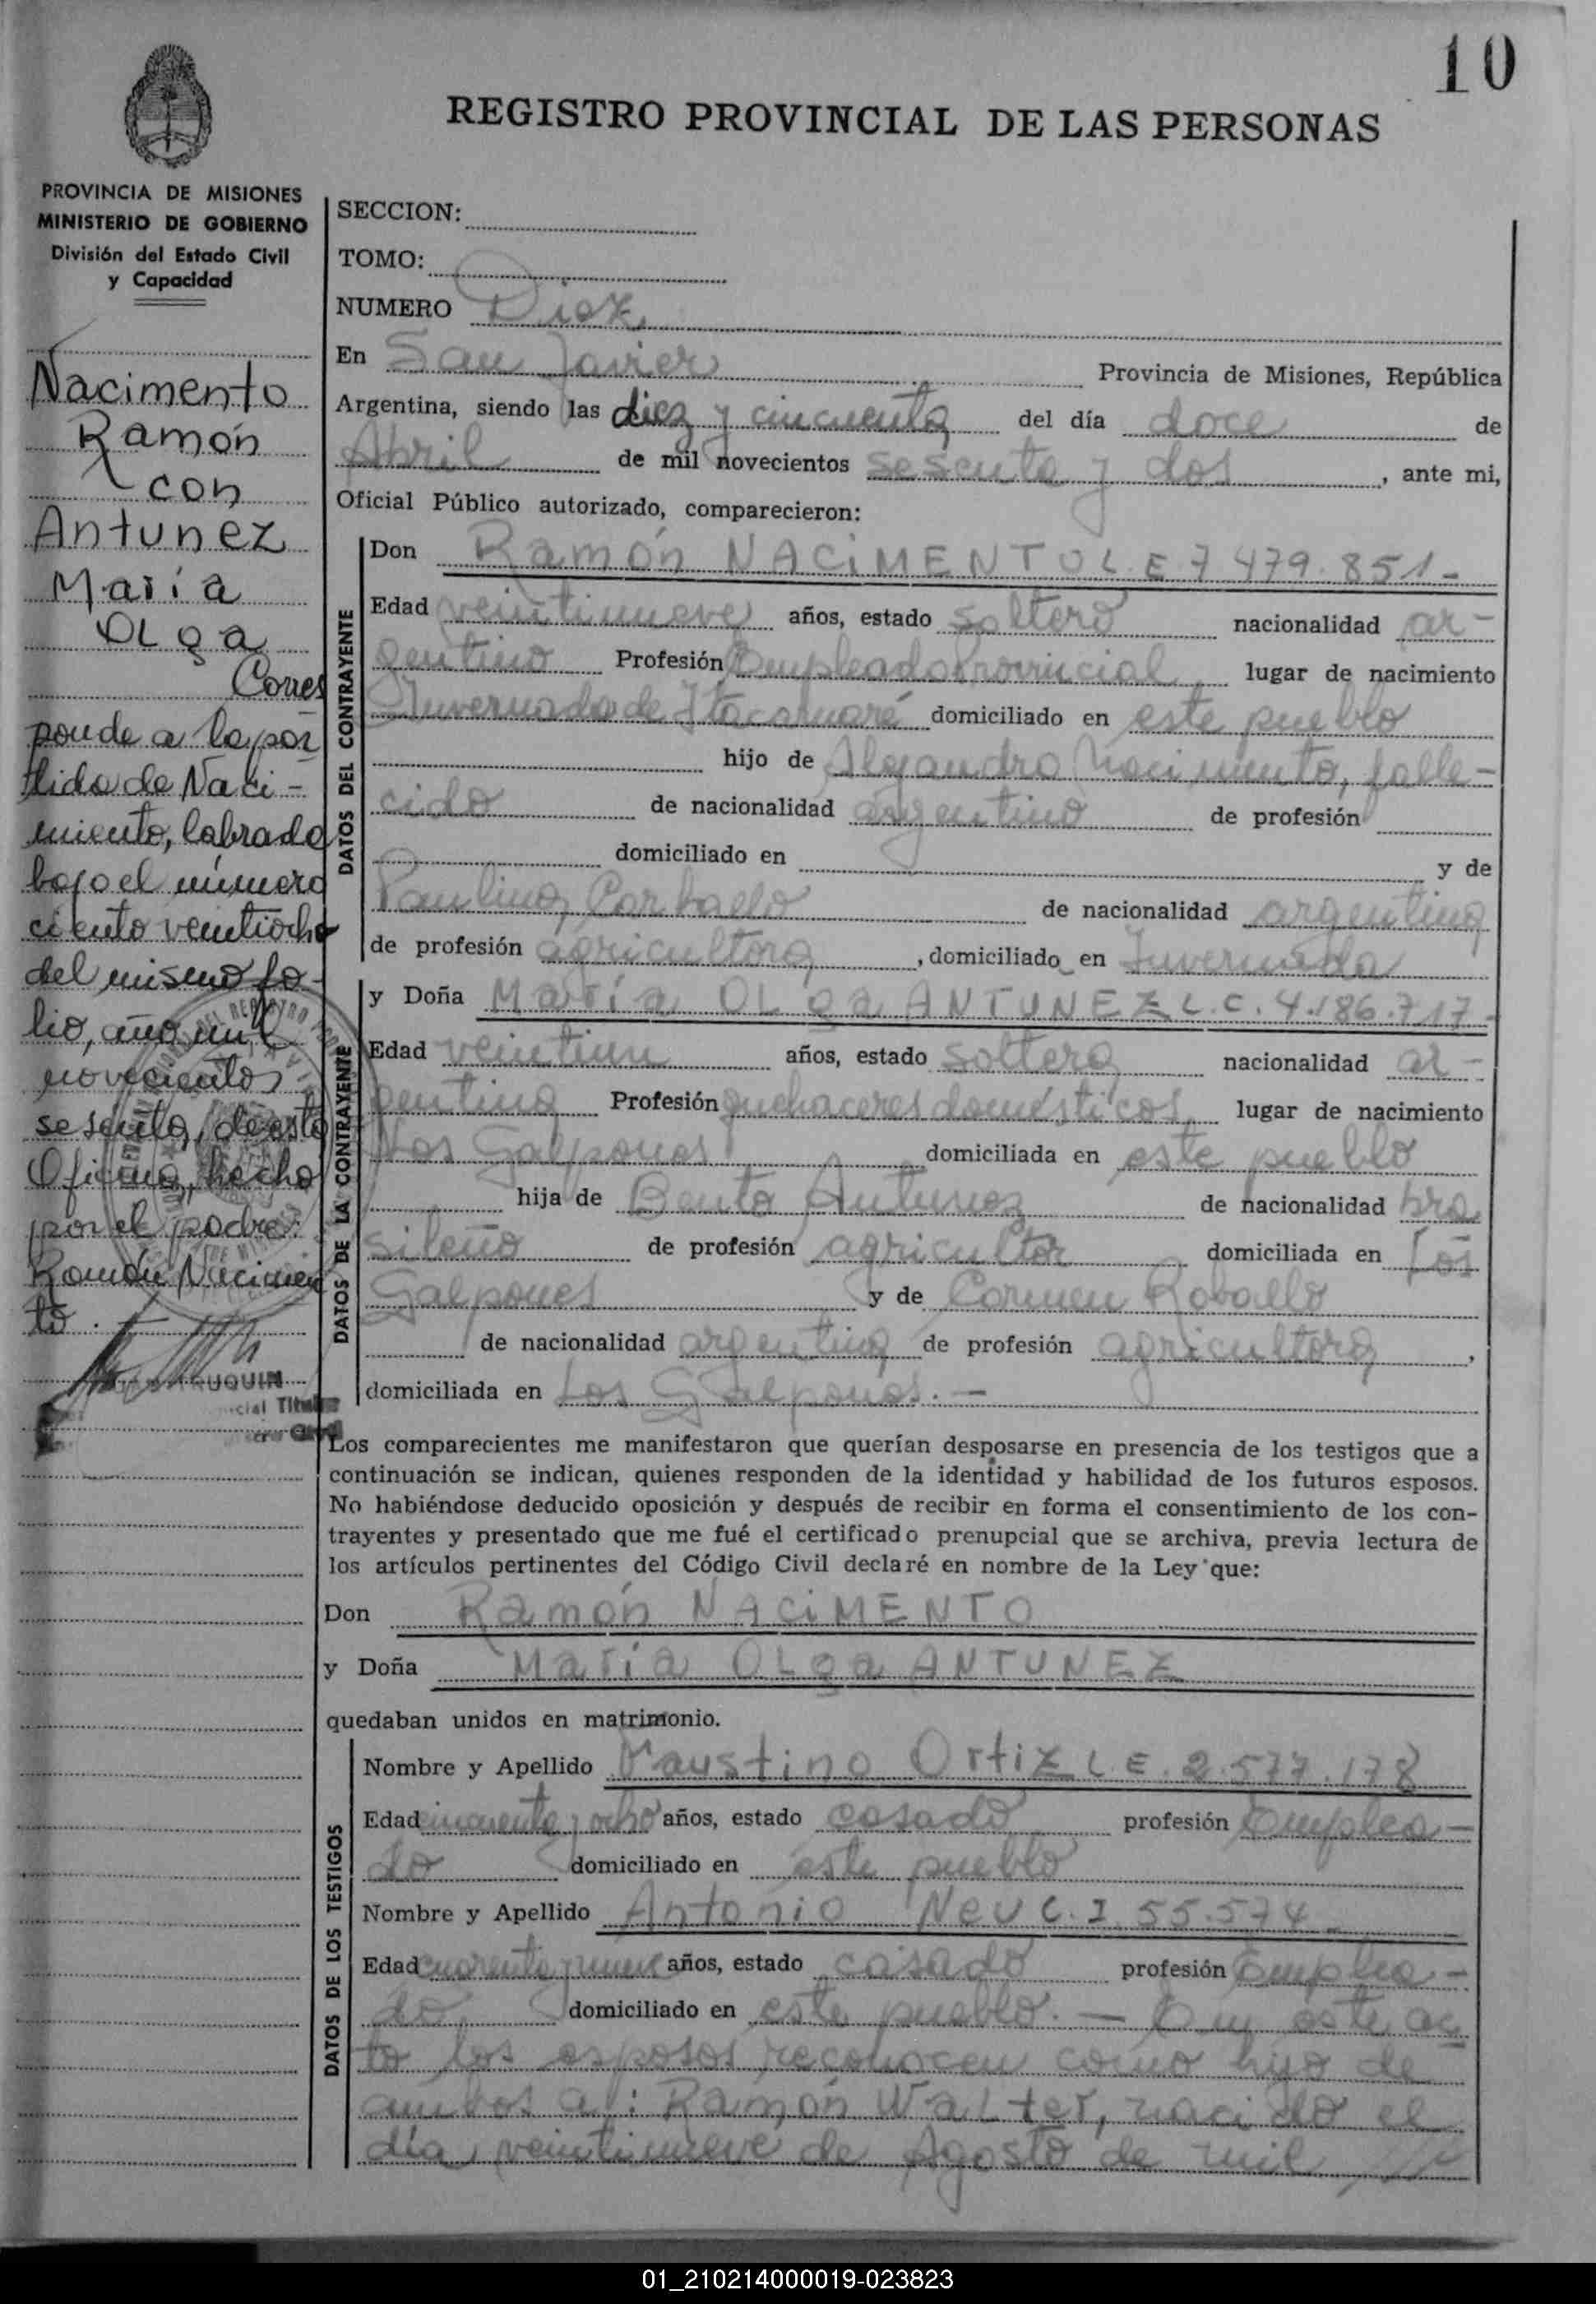 10
REGISTRO PROVINCIAL DE LAS PERSONAS
PROVINCIA DE MISIONES
MINISTERIO DE GOBIERNO
División del Estado Civil
y Capacidad
Nacimento
Ramón
con
Antunez
María
OLga
Corres
ponde a la par
tida de Naci-
miento, labrada
bajo el número
ciento veintiocho
del mismo fo-
lio, año mil
novecientos
sesenta, de esta
Oficina, hecho
por el padre:
Ramón Nacimen
to.
UQUIN
SECCION:
TOMO:
NUMERO Diez
En San Javier Provincia de Misiones, República
Argentina, siendo las diez y cincuenta del día doce de
Abril de mil novecientos sesenta y dos, ante mi,
Oficial Público autorizado, comparecieron:
DATOS DEL CONTRAYENTE
Don Ramón NACIMENTO L.E. 7 479.851-
Edad veintinueve años, estado soltero nacionalidad ar-
gentino Profesión Empleado Provincial lugar de nacimiento
Invernada de Itacaruaré domiciliado en este pueblo
hijo de Alejandro Nacimento, falle-
cido de nacionalidad argentino de profesión
domiciliado en y de
Paulina Carballo de nacionalidad argentina
de profesión agricultora, domiciliado en Invernada
DATOS DE LA CONTRAYENTE
y Doña María OLga ANTUNEZ L.C. 4.186.717-
Edad veintiun años, estado soltera nacionalidad ar-
gentina Profesión quehaceres domésticos, lugar de nacimiento
Los Galpones domiciliada en este pueblo
hija de Bento Antunez de nacionalidad bra
sileño de profesión agricultor domiciliada en Los
Galpones y de Carmen Roballo
de nacionalidad argentina de profesión agricultora,
domiciliada en Los Galpones.-
Los comparecientes me manifestaron que querían desposarse en presencia de los testigos que a
continuación se indican, quienes responden de la identidad y habilidad de los futuros esposos.
No habiéndose deducido oposición y después de recibir en forma el consentimiento de los con-
trayentes y presentado que me fué el certificado prenupcial que se archiva, previa lectura de
los artículos pertinentes del Código Civil declaré en nombre de la Ley que:
Don Ramón NACIMENTO
y Doña María OLga ANTUNEZ
quedaban unidos en matrimonio.
DATOS DE LOS TESTIGOS
Nombre y Apellido Faustino Ortiz L.E. 2.577.178
Edad cincuenta y ocho años, estado casado profesión Emplea-
do domiciliado en este pueblo
Nombre y Apellido Antonio Neu C.I. 55.574
Edad cuarenta y nueve años, estado casado profesión Emplea-
do, domiciliado en este pueblo.- En este ac
to los esposos reconocen como hijo de
ambos a: Ramón Walter, nacido el
día veintinueve de Agosto de mil
01_210214000019-023823